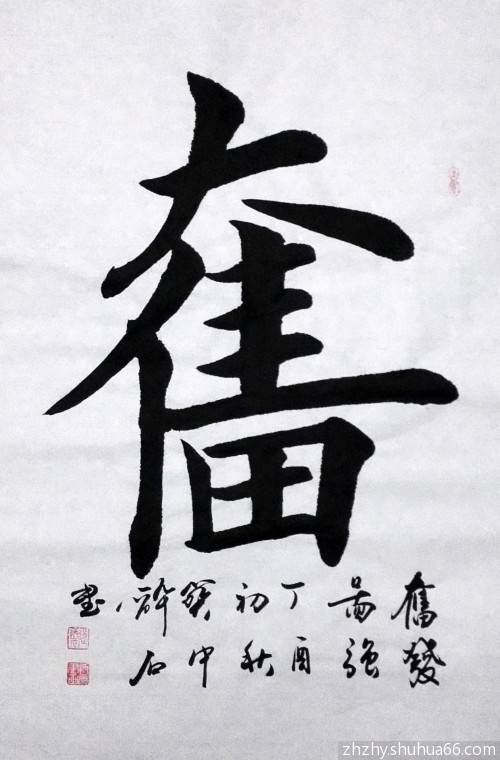 奮
奮發
啚强
丁酉
初秋
中
醉石
書
zhzhy.shuhua66.com